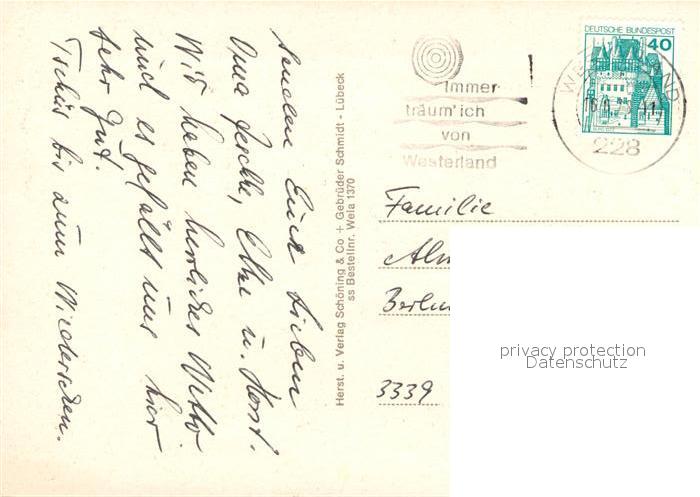 senden Euch lieben
Oma Gesche, Elke u. Horst.
Wir haben herrliches Wetter
und es gefällt uns hier
sehr gut.
Tschüs bis zum Wiedersehen.
Herst. u. Verlag Schöning & Co + Gebrüder Schmidt - Lübeck
ss Bestellnr. Wela 1370
Immer
träum' ich
von
Westerland
DEUTSCHE BUNDESPOST
40
WESTERLAND
228
Familie
Berlin
3339
privacy protection
Datenschutz